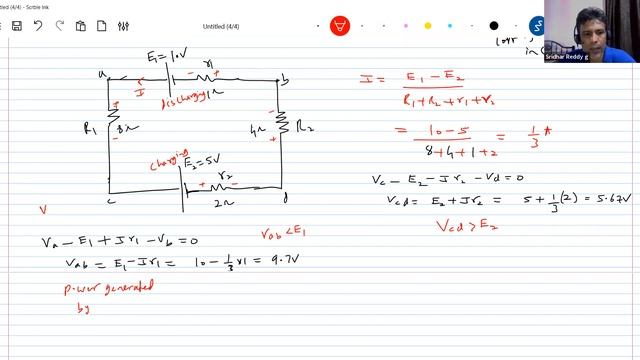 tled (4/4) - Scrble Ink
Untitled (4/4)
Sridhar Reddy g
in
E₁ = 10V
r₁
a
b
I
discharging
1Ω
R₁
8Ω
4Ω
R₂
charging
E₂ = 5V
r₂
2Ω
c
d
V
I = E₁ - E₂ / R₁ + R₂ + r₁ + r₂
= 10 - 5 / 8 + 4 + 1 + 2 = 1/3 A
Vc - E₂ - Ir₂ - Vd = 0
Vcd = E₂ + Ir₂ = 5 + 1/3 (2) = 5.67V
Vcd > E₂
Va - E₁ + Ir₁ - Vb = 0
Vab < E₁
Vab = E₁ - Ir₁ = 10 - 1/3 x1 = 9.7V
Power generated
by